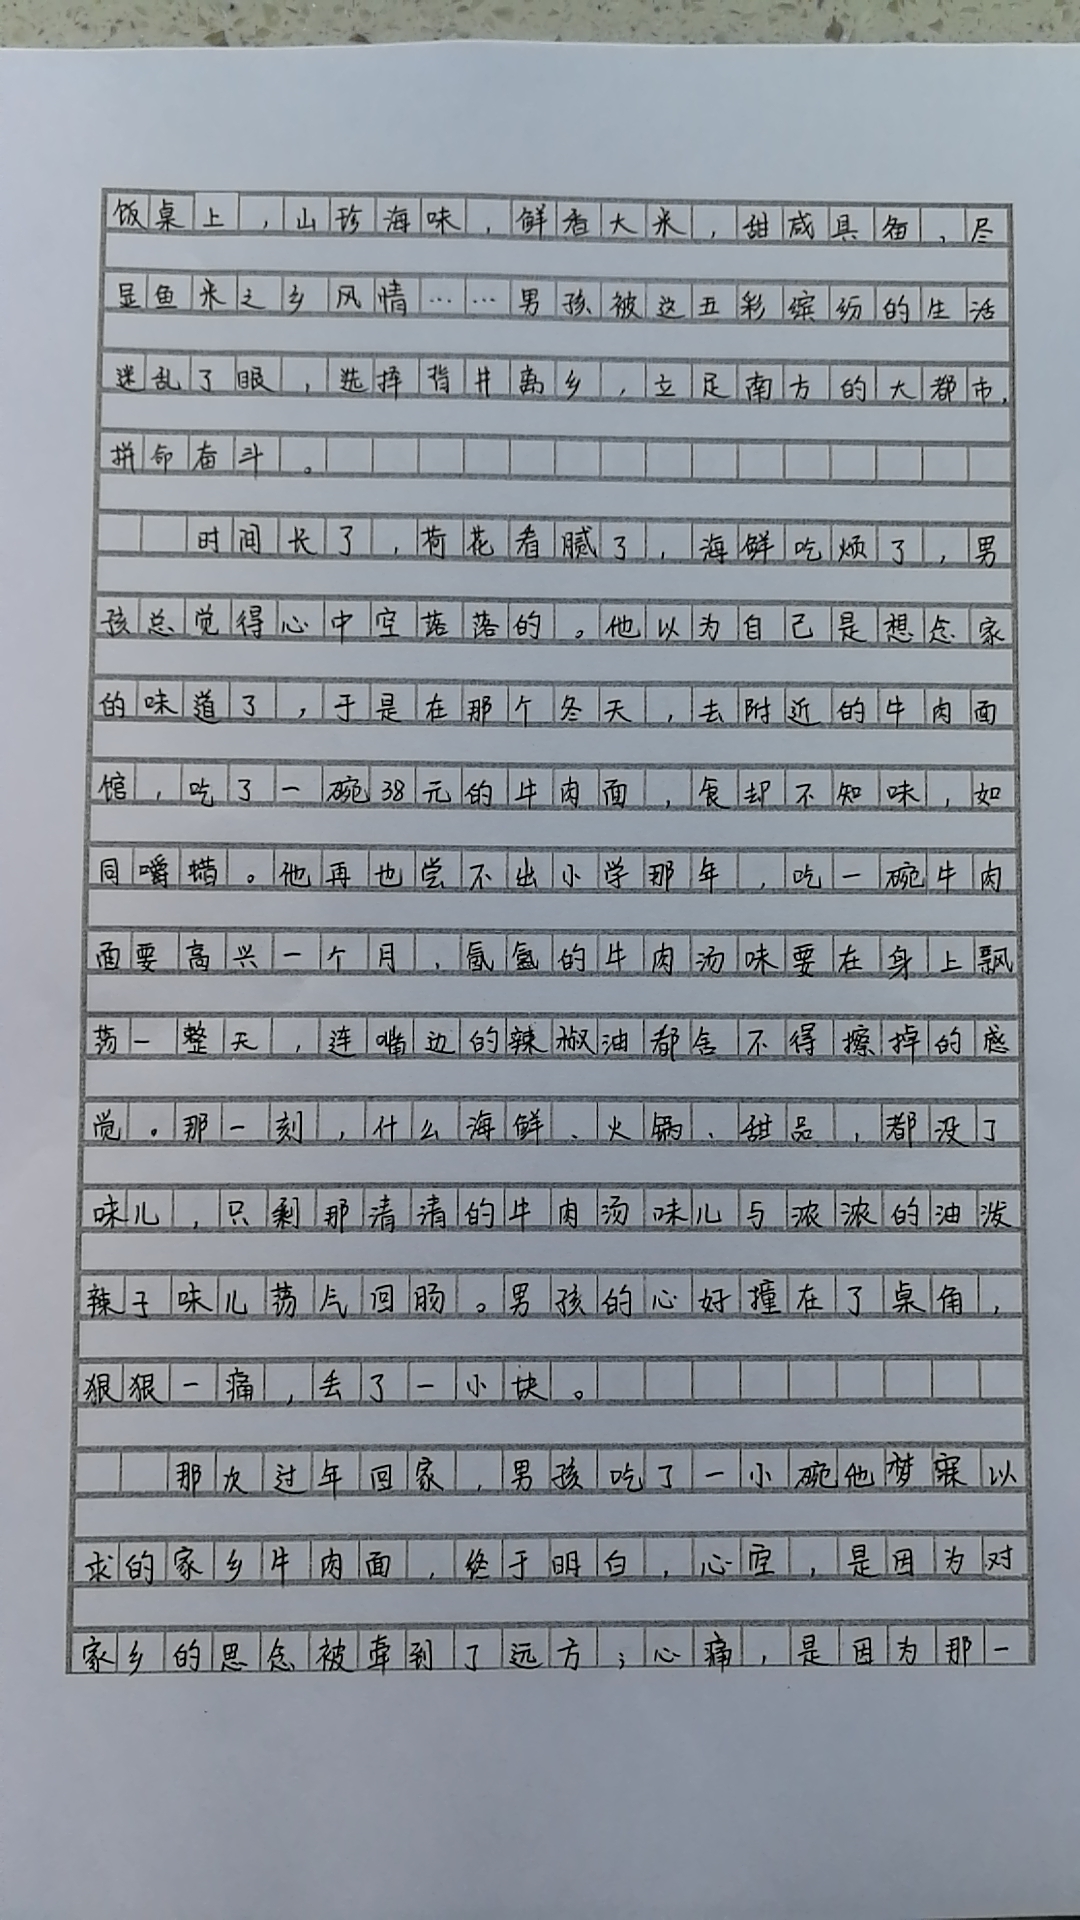 饭桌上，山珍海味，鲜香大米，甜咸具备，尽
显鱼米之乡风情……男孩被这五彩缤纷的生活
迷乱了眼，选择背井离乡，立足南方的大都市，
拼命奋斗。
时间长了，荷花看腻了，海鲜吃烦了，男
孩总觉得心中空落落的。他以为自己是想念家
的味道了，于是在那个冬天，去附近的牛肉面
馆，吃了一碗38元的牛肉面，食却不知味，如
同嚼蜡。他再也尝不出小学那年，吃一碗牛肉
面要高兴一个月，氤氲的牛肉汤味要在身上飘
荡一整天，连嘴边的辣椒油都舍不得擦掉的感
觉。那一刻，什么海鲜、火锅、甜品，都没了
味儿，只剩那清清的牛肉汤味儿与浓浓的油泼
辣子味儿荡气回肠。男孩的心好撞在了桌角，
狠狠一痛，丢了一小块。
那次过年回家，男孩吃了一小碗他梦寐以
求的家乡牛肉面，终于明白，心空，是因为对
家乡的思念被牵到了远方；心痛，是因为那一